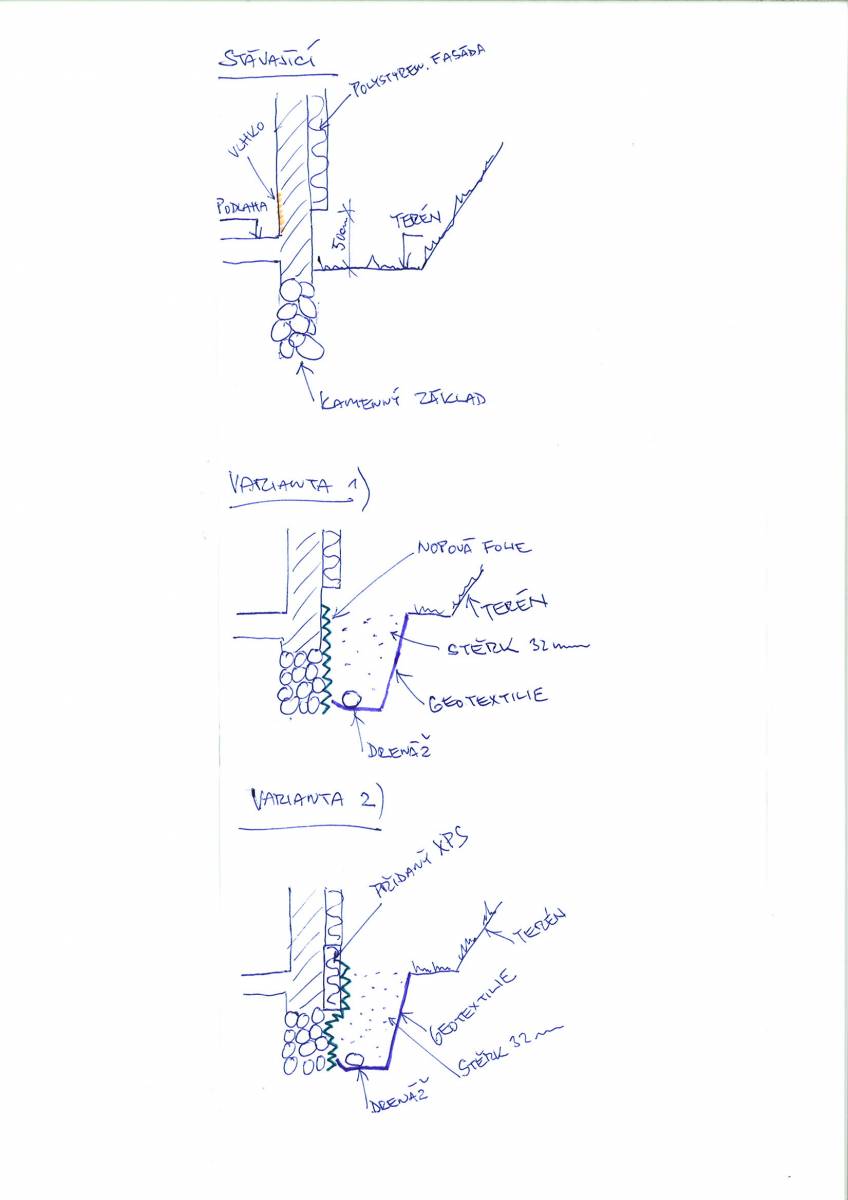 STÁVAJÍCÍ
POLYSTYREN. FASÁDA
VLHKO
PODLAHA
50cm
TERÉN
KAMENNÝ ZÁKLAD
VARIANTA 1)
NOPOVÁ FOLIE
TERÉN
STĚRK 32mm
GEOTEXTILIE
DRENÁŽ
VARIANTA 2)
PŘIDANÝ XPS
TERÉN
GEOTEXTILIE
STĚRK 32mm
DRENÁŽ